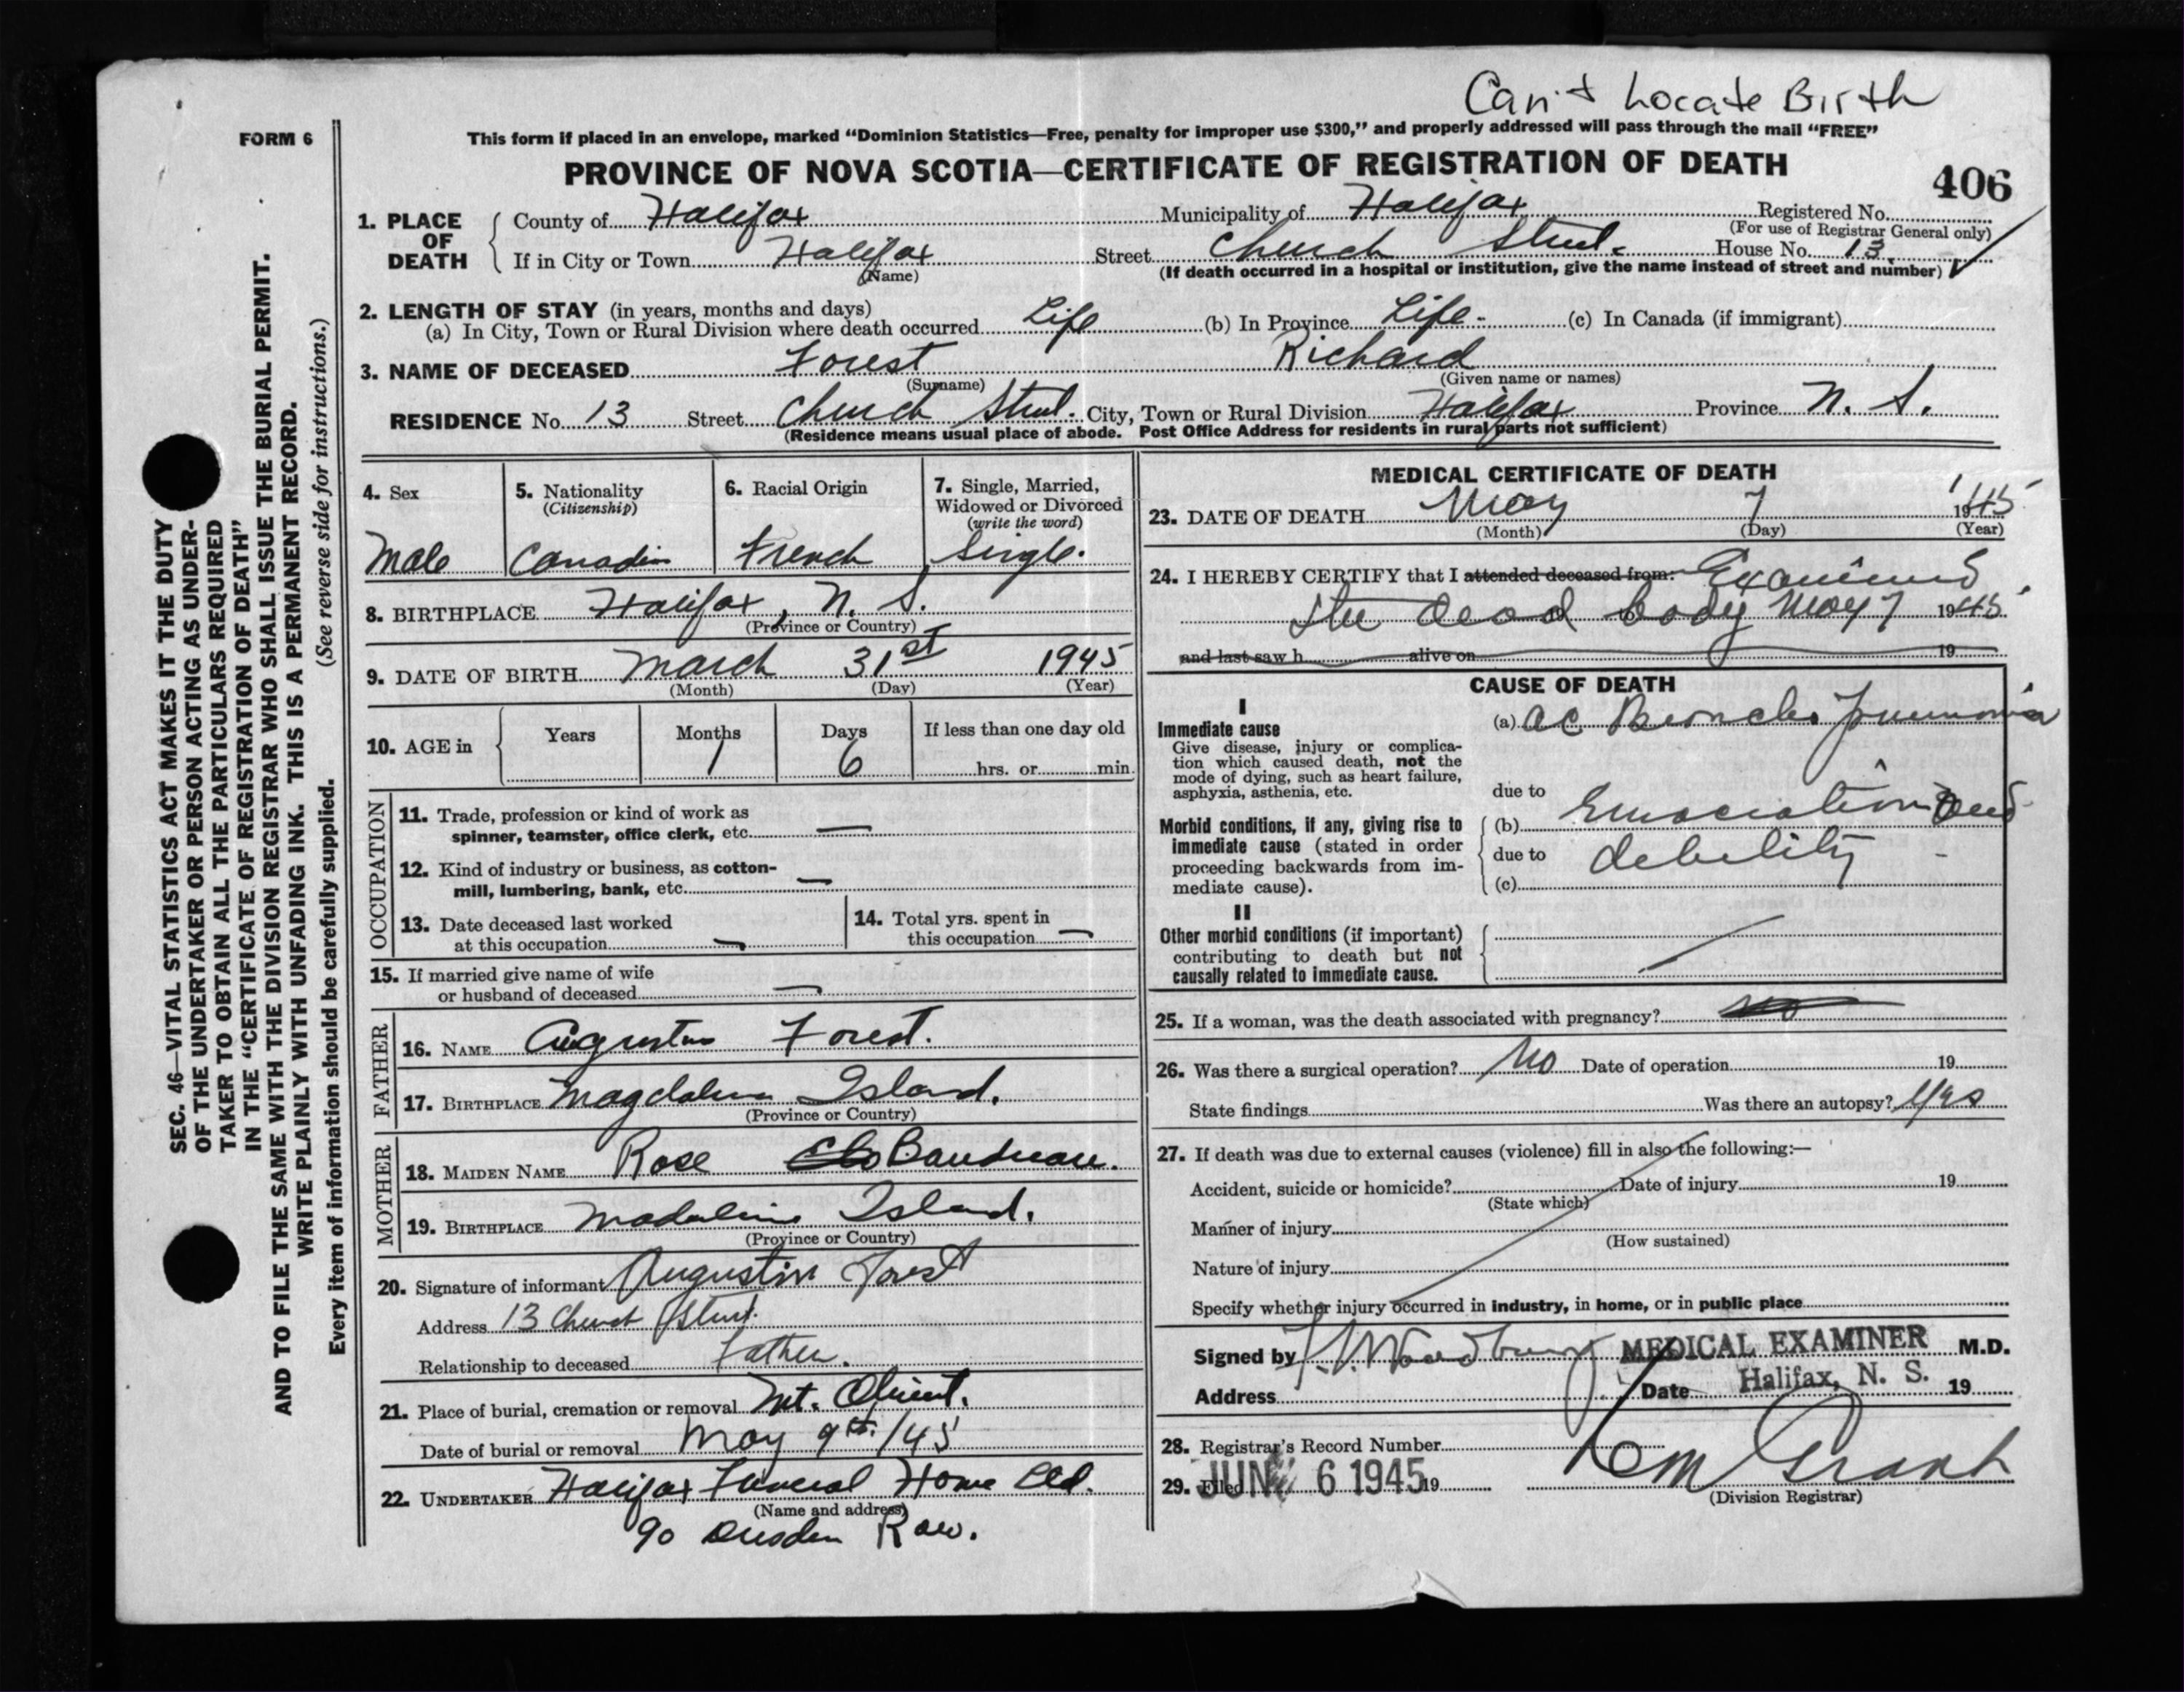 Can't Locate Birth
FORM 6
This form if placed in an envelope, marked "Dominion Statistics—Free, penalty for improper use $300," and properly addressed will pass through the mail "FREE"
PROVINCE OF NOVA SCOTIA—CERTIFICATE OF REGISTRATION OF DEATH
406
1. PLACE OF DEATH
County of Halifax Municipality of Halifax Registered No.
(For use of Registrar General only)
If in City or Town Halifax Street Church Street House No. 13
(Name) (If death occurred in a hospital or institution, give the name instead of street and number)
2. LENGTH OF STAY (in years, months and days)
(a) In City, Town or Rural Division where death occurred Life (b) In Province Life - (c) In Canada (if immigrant)
3. NAME OF DECEASED Forest Richard
(Surname) (Given name or names)
RESIDENCE No. 13 Street Church Street. City, Town or Rural Division Halifax Province N. S.
(Residence means usual place of abode. Post Office Address for residents in rural parts not sufficient)
SEC. 46—VITAL STATISTICS ACT MAKES IT THE DUTY
OF THE UNDERTAKER OR PERSON ACTING AS UNDER-
TAKER TO OBTAIN ALL THE PARTICULARS REQUIRED
IN THE "CERTIFICATE OF REGISTRATION OF DEATH"
AND TO FILE THE SAME WITH THE DIVISION REGISTRAR WHO SHALL ISSUE THE BURIAL PERMIT.
WRITE PLAINLY WITH UNFADING INK. THIS IS A PERMANENT RECORD.
Every item of information should be carefully supplied. (See reverse side for instructions.)
4. Sex
Male
5. Nationality
(Citizenship)
Canadin
6. Racial Origin
French
7. Single, Married,
Widowed or Divorced
(write the word)
Single.
8. BIRTHPLACE Halifax, N. S.
(Province or Country)
9. DATE OF BIRTH March 31st 1945
(Month) (Day) (Year)
10. AGE in Years Months Days If less than one day old
1 6 hrs. or min.
OCCUPATION
11. Trade, profession or kind of work as
spinner, teamster, office clerk, etc. —
12. Kind of industry or business, as cotton-
mill, lumbering, bank, etc. —
13. Date deceased last worked
at this occupation —
14. Total yrs. spent in
this occupation —
15. If married give name of wife
or husband of deceased —
FATHER
16. NAME Augustus Forest.
17. BIRTHPLACE Magdalene Island.
(Province or Country)
MOTHER
18. MAIDEN NAME Rose Baudreau.
19. BIRTHPLACE Madaline Island.
(Province or Country)
20. Signature of informant Augustin Forest
Address 13 Church Street.
Relationship to deceased Father.
21. Place of burial, cremation or removal Mt. Olivet.
Date of burial or removal May 9th/45
22. UNDERTAKER Halifax Funeral Home Ltd.
(Name and address)
90 Dresden Row.
MEDICAL CERTIFICATE OF DEATH
23. DATE OF DEATH May 7 1945
(Month) (Day) (Year)
24. I HEREBY CERTIFY that I attended deceased from: Examined
the dead body May 7 1945
and last saw h alive on 19
CAUSE OF DEATH
I
Immediate cause
Give disease, injury or complica-
tion which caused death, not the
mode of dying, such as heart failure,
asphyxia, asthenia, etc.
(a) ac Broncho Pneumonia
due to
Morbid conditions, if any, giving rise to
immediate cause (stated in order
proceeding backwards from im-
mediate cause).
(b) Emaciation and
due to debility -
(c)
II
Other morbid conditions (if important)
contributing to death but not
causally related to immediate cause.
25. If a woman, was the death associated with pregnancy? No
26. Was there a surgical operation? No Date of operation 19
State findings Was there an autopsy? Yes
27. If death was due to external causes (violence) fill in also the following:—
Accident, suicide or homicide? Date of injury 19
(State which)
Manner of injury
(How sustained)
Nature of injury
Specify whether injury occurred in industry, in home, or in public place
Signed by Woodbury MEDICAL EXAMINER M.D.
Address Date Halifax, N. S. 19
28. Registrar's Record Number
29. Filed JUN 6 1945 19 Grant
(Division Registrar)